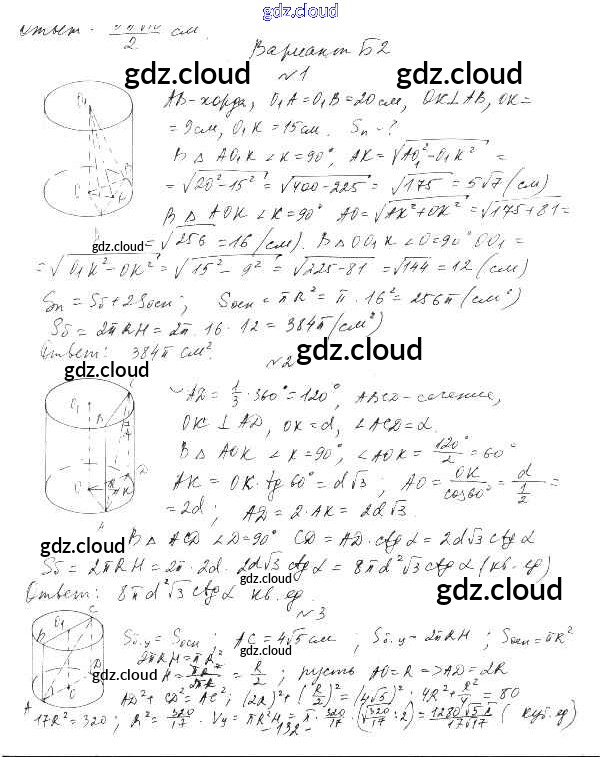 gdz.cloud
gdz.cloud
Ответ - см.
2
Вариант Б2
gdz.cloud gdz.cloud
№1
AB-хорда, O₁A=O₁B=20см, OK⊥AB, OK=
=9см, O₁K=15см. Sп-?
В △ AO₁K ∠K=90°, AK=√(AO₁²-O₁K²) =
=√(20²-15²)=√(400-225)=√175=5√7(см)
В △ AOK ∠K=90° AO=√(AK²+OK²)=√(175+81)=
gdz.cloud
=√256=16(см). В △OO₁K ∠O=90° OO₁=
=√(O₁K²-OK²)=√(15²-9²)=√(225-81)=√144=12(см)
Sп=Sб+2Sосн; Sосн=πR²=π·16²=256π(см²)
Sб=2πRH=2π·16·12=384π(см²)
Ответ: 384π см².
gdz.cloud gdz.cloud
№2
◡AD=1/3·360°=120°, ABCD-сечение,
OK⊥AD, OK=d, ∠ACD=α.
В △ AOK ∠K=90°, ∠AOK=120°/2=60°
AK=OK·tg60°=d√3; AO=OK/cos60°=d/(1/2)=
=2d; AD=2·AK=2d√3.
gdz.cloud
В △ ACD ∠D=90° CD=AD·ctgα=2d√3ctgα
gdz.cloud
Sб=2πRH=2π·2d·2d√3ctgα=8πd²√3ctgα(кв.ед)
gdz.cloud gdz.cloud
Ответ: 8πd²√3ctgα кв.ед.
№3
Sб.у=Sосн; AC=4√5см; Sб.у=2πRH; Sосн=πR²
2πRH=πR²
H=πR²/2πR=R/2; пусть AO=R=>AD=2R
gdz.cloud
AD²+CD²=AC²; (2R)²+(R/2)²=(4√5)²; 4R²+R²/4=80
17R²=320; R²=320/17. Vу=πR²H=π·320/17·(√(320/17):2)=1280√5π/17√17(куб.ед)
-132-